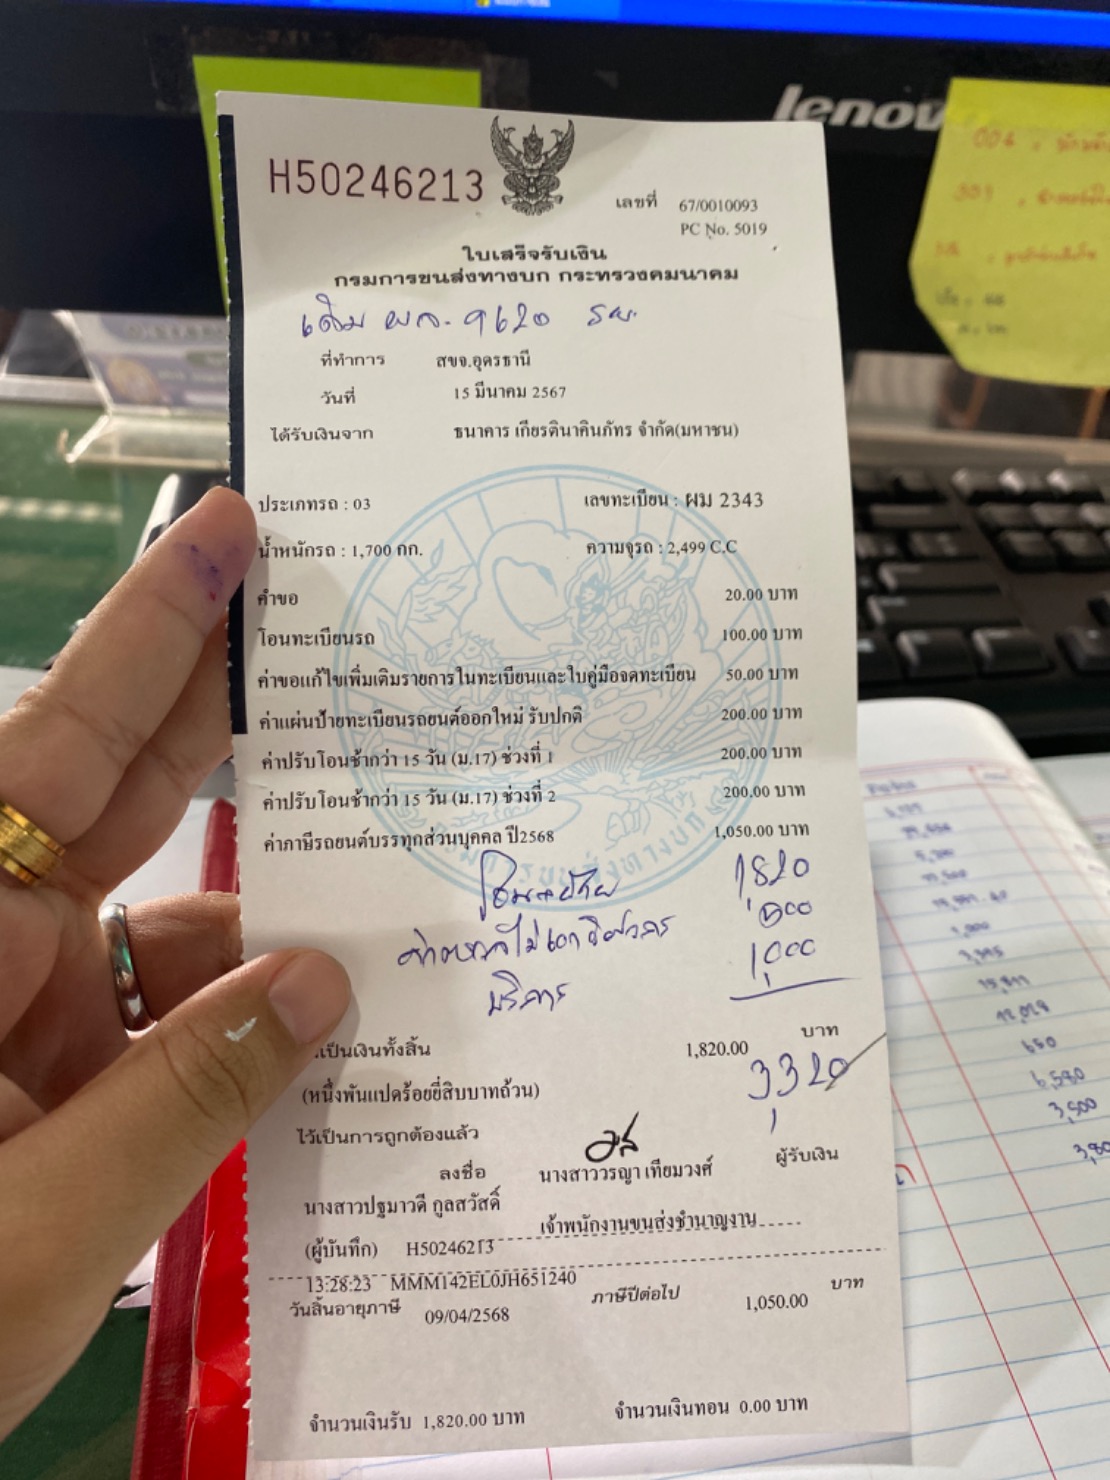 lenovo
H50246213
เลขที่ 67/0010093
PC No. 5019
ใบเสร็จรับเงิน
กรมการขนส่งทางบก กระทรวงคมนาคม
เดิม ผจ-9620
ที่ทำการ สขจ.อุดรธานี
วันที่ 15 มีนาคม 2567
ได้รับเงินจาก ธนาคาร เกียรตินาคินภัทร จำกัด(มหาชน)
ประเภทรถ : 03 เลขทะเบียน : ผม 2343
น้ำหนักรถ : 1,700 กก. ความจุรถ : 2,499 C.C
คำขอ 20.00 บาท
โอนทะเบียนรถ 100.00 บาท
ค่าขอแก้ไขเพิ่มเติมรายการในทะเบียนและใบคู่มือจดทะเบียน 50.00 บาท
ค่าแผ่นป้ายทะเบียนรถยนต์ออกใหม่ รับปกติ 200.00 บาท
ค่าปรับโอนช้ากว่า 15 วัน (ม.17) ช่วงที่ 1 200.00 บาท
ค่าปรับโอนช้ากว่า 15 วัน (ม.17) ช่วงที่ 2 200.00 บาท
ค่าภาษีรถยนต์บรรทุกส่วนบุคคล ปี2568 1,050.00 บาท
1,820
500
บริการ 1,000
เป็นเงินทั้งสิ้น 1,820.00 บาท
3,320
(หนึ่งพันแปดร้อยยี่สิบบาทถ้วน)
ไว้เป็นการถูกต้องแล้ว
ลงชื่อ นางสาววรญา เทียมวงศ์ ผู้รับเงิน
นางสาวปฐมาวดี กูลสวัสดิ์
เจ้าพนักงานขนส่งชำนาญงาน
(ผู้บันทึก) H50246213
13:28:23 MMM142EL0JH651240
วันสิ้นอายุภาษี 09/04/2568 ภาษีปีต่อไป 1,050.00 บาท
จำนวนเงินรับ 1,820.00 บาท จำนวนเงินทอน 0.00 บาท